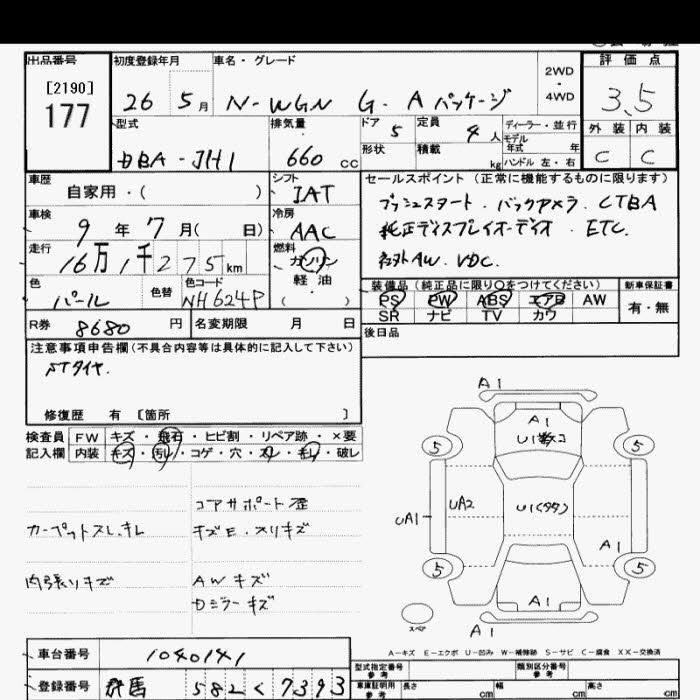 出品番号 初度登録年月 車名・グレード 評価点
[2190] 2WD・4WD
177 26 5月 N-WGN G・Aパッケージ 3.5
型式 排気量 ドア 5 定員 4人 ディーラー・並行 外装 内装
DBA-JH1 660cc 形状 積載 kg モデル年式 年 ハンドル 左・右 C C
車歴 自家用・( ) シフト IAT セールスポイント(正常に機能するものに限ります)
車検 9年7月( 日) 冷房 AAC プッシュスタート.バックカメラ.CTBA
走行 16万1千275km 燃料 ガソリン 純正ディスプレイオーディオ.ETC.
軽油 ( ) 社外AW.VDC.
色 パール 色替 色コード NH624P 装備品(純正品に限り○をつけてください) 新車保証書
PS PW ABS エアB AW 有・無
R券 8680円 名変期限 月 日 SR ナビ TV カワ
注意事項申告欄(不具合内容等は具体的に記入して下さい) 後日品
STタイヤ.
修復歴 有 [箇所 ]
検査員 FW キズ・飛石・ヒビ割・リペア跡・×要
記入欄 内装 キズ・汚レ・コゲ・穴・スレ・キレ・破レ
コアサポート歪
カーペットスレ.キレ キズE.スリキズ
内張リキズ AWキズ
Dミラーキズ
A1
A1
U1数コ
5 5
UA1 UA2 U1(多々)
A1
5 5
A1
スペア A1
A-キズ E-エクボ U-凹み W-補修跡 S-サビ C-腐食 XX-交換済
車台番号 1040141 型式指定番号 参考 類別区分番号 参考
登録番号 群馬 582く7393 車庫証明用 参考 長さ cm 幅 cm 高さ cm